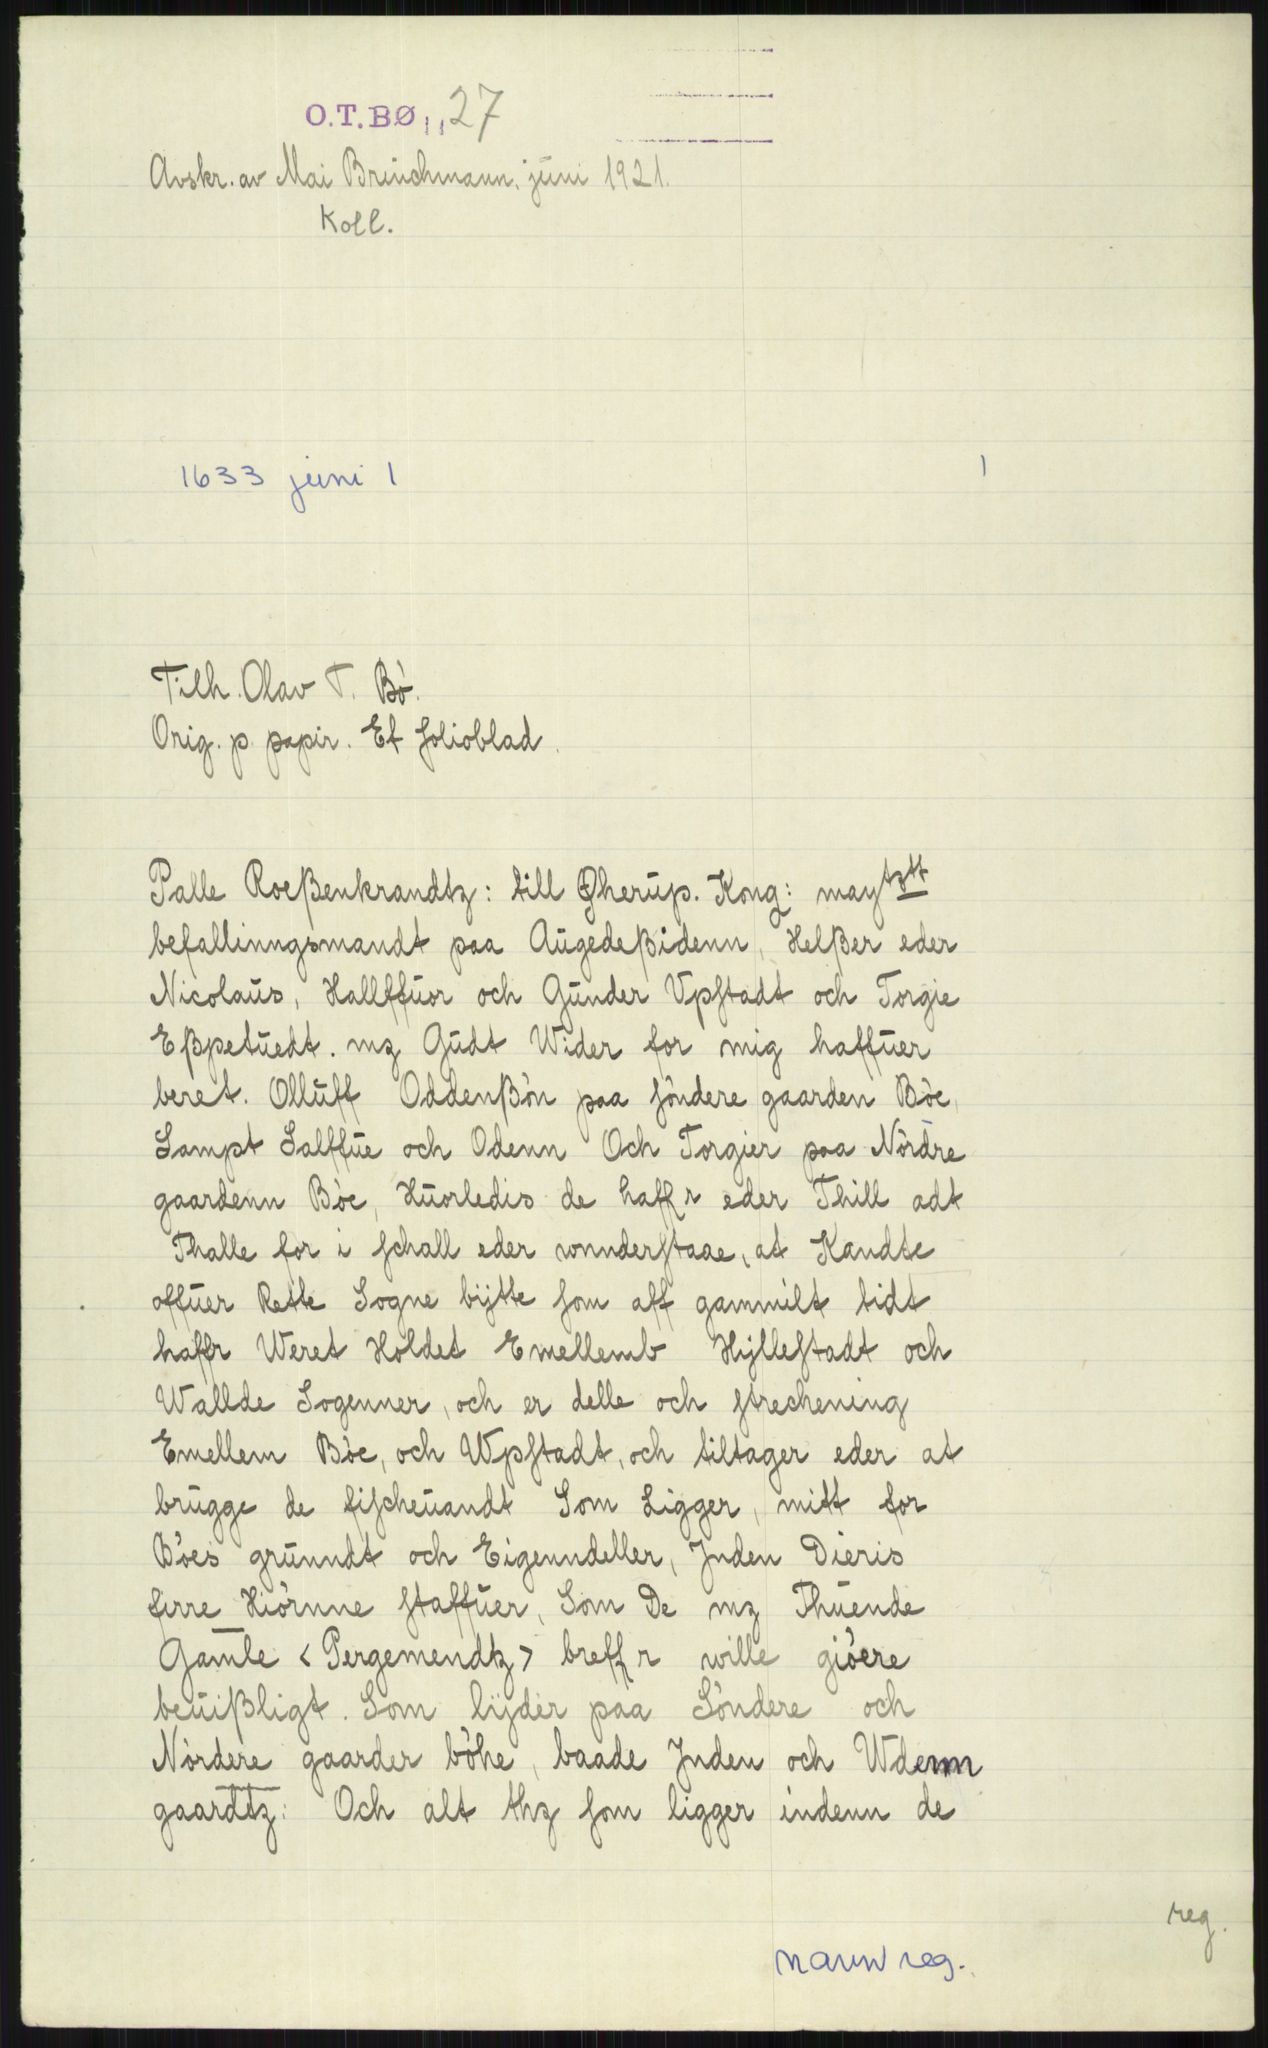 O.T.BØ,, 27
Avskr. av Mai Bruchmann, juni 1921.
Koll.
1633 juni 1
1
Tilh. Olav T. Bö.
Orig. p. papir. Et folioblad.
Palle Roeßenkrandtz: till Øherup. Kong: maytztt
befallinngsmandt paa Augedeßidenn, Helßer eder
Nicolaus, Hallffuor och Gunder Vpstadt och Torgie
Eßpetuedt. mz Gudt Wider for mig haffuer
beret. Olluff Oddenßön paa söndere gaarden Böe,
Sampt Salffue och Odenn Och Torgier paa Nördre
gaardenn Böe, Huorledis de haffr eder Thill adt
Thalle for i schall eder wnnderstaae, at Kandte
offuer Rette Sogne bijtte som aff gammilt tidt
haffr Weret Holdet Emellemb Hyllestadt och
Wallde Sogenner, och er delle och streckening
Emellem Böe, och Wpstadt, och tiltager eder at
brugge de fischeuandt Som Ligger, mitt for
Böes grunndt och Eigenndeller, Jnden Dieris
firre Hiörnne staffuer, Som De mz Thuende
Gamle < Pergemendtz > breffr wille giöere
beuißligt. Som lyder paa Söndere och
Nördere gaarder böhe, baade Jnden och Wdenn
gaardtz: Och alt thz som ligger indenn de
reg.
navnreg.